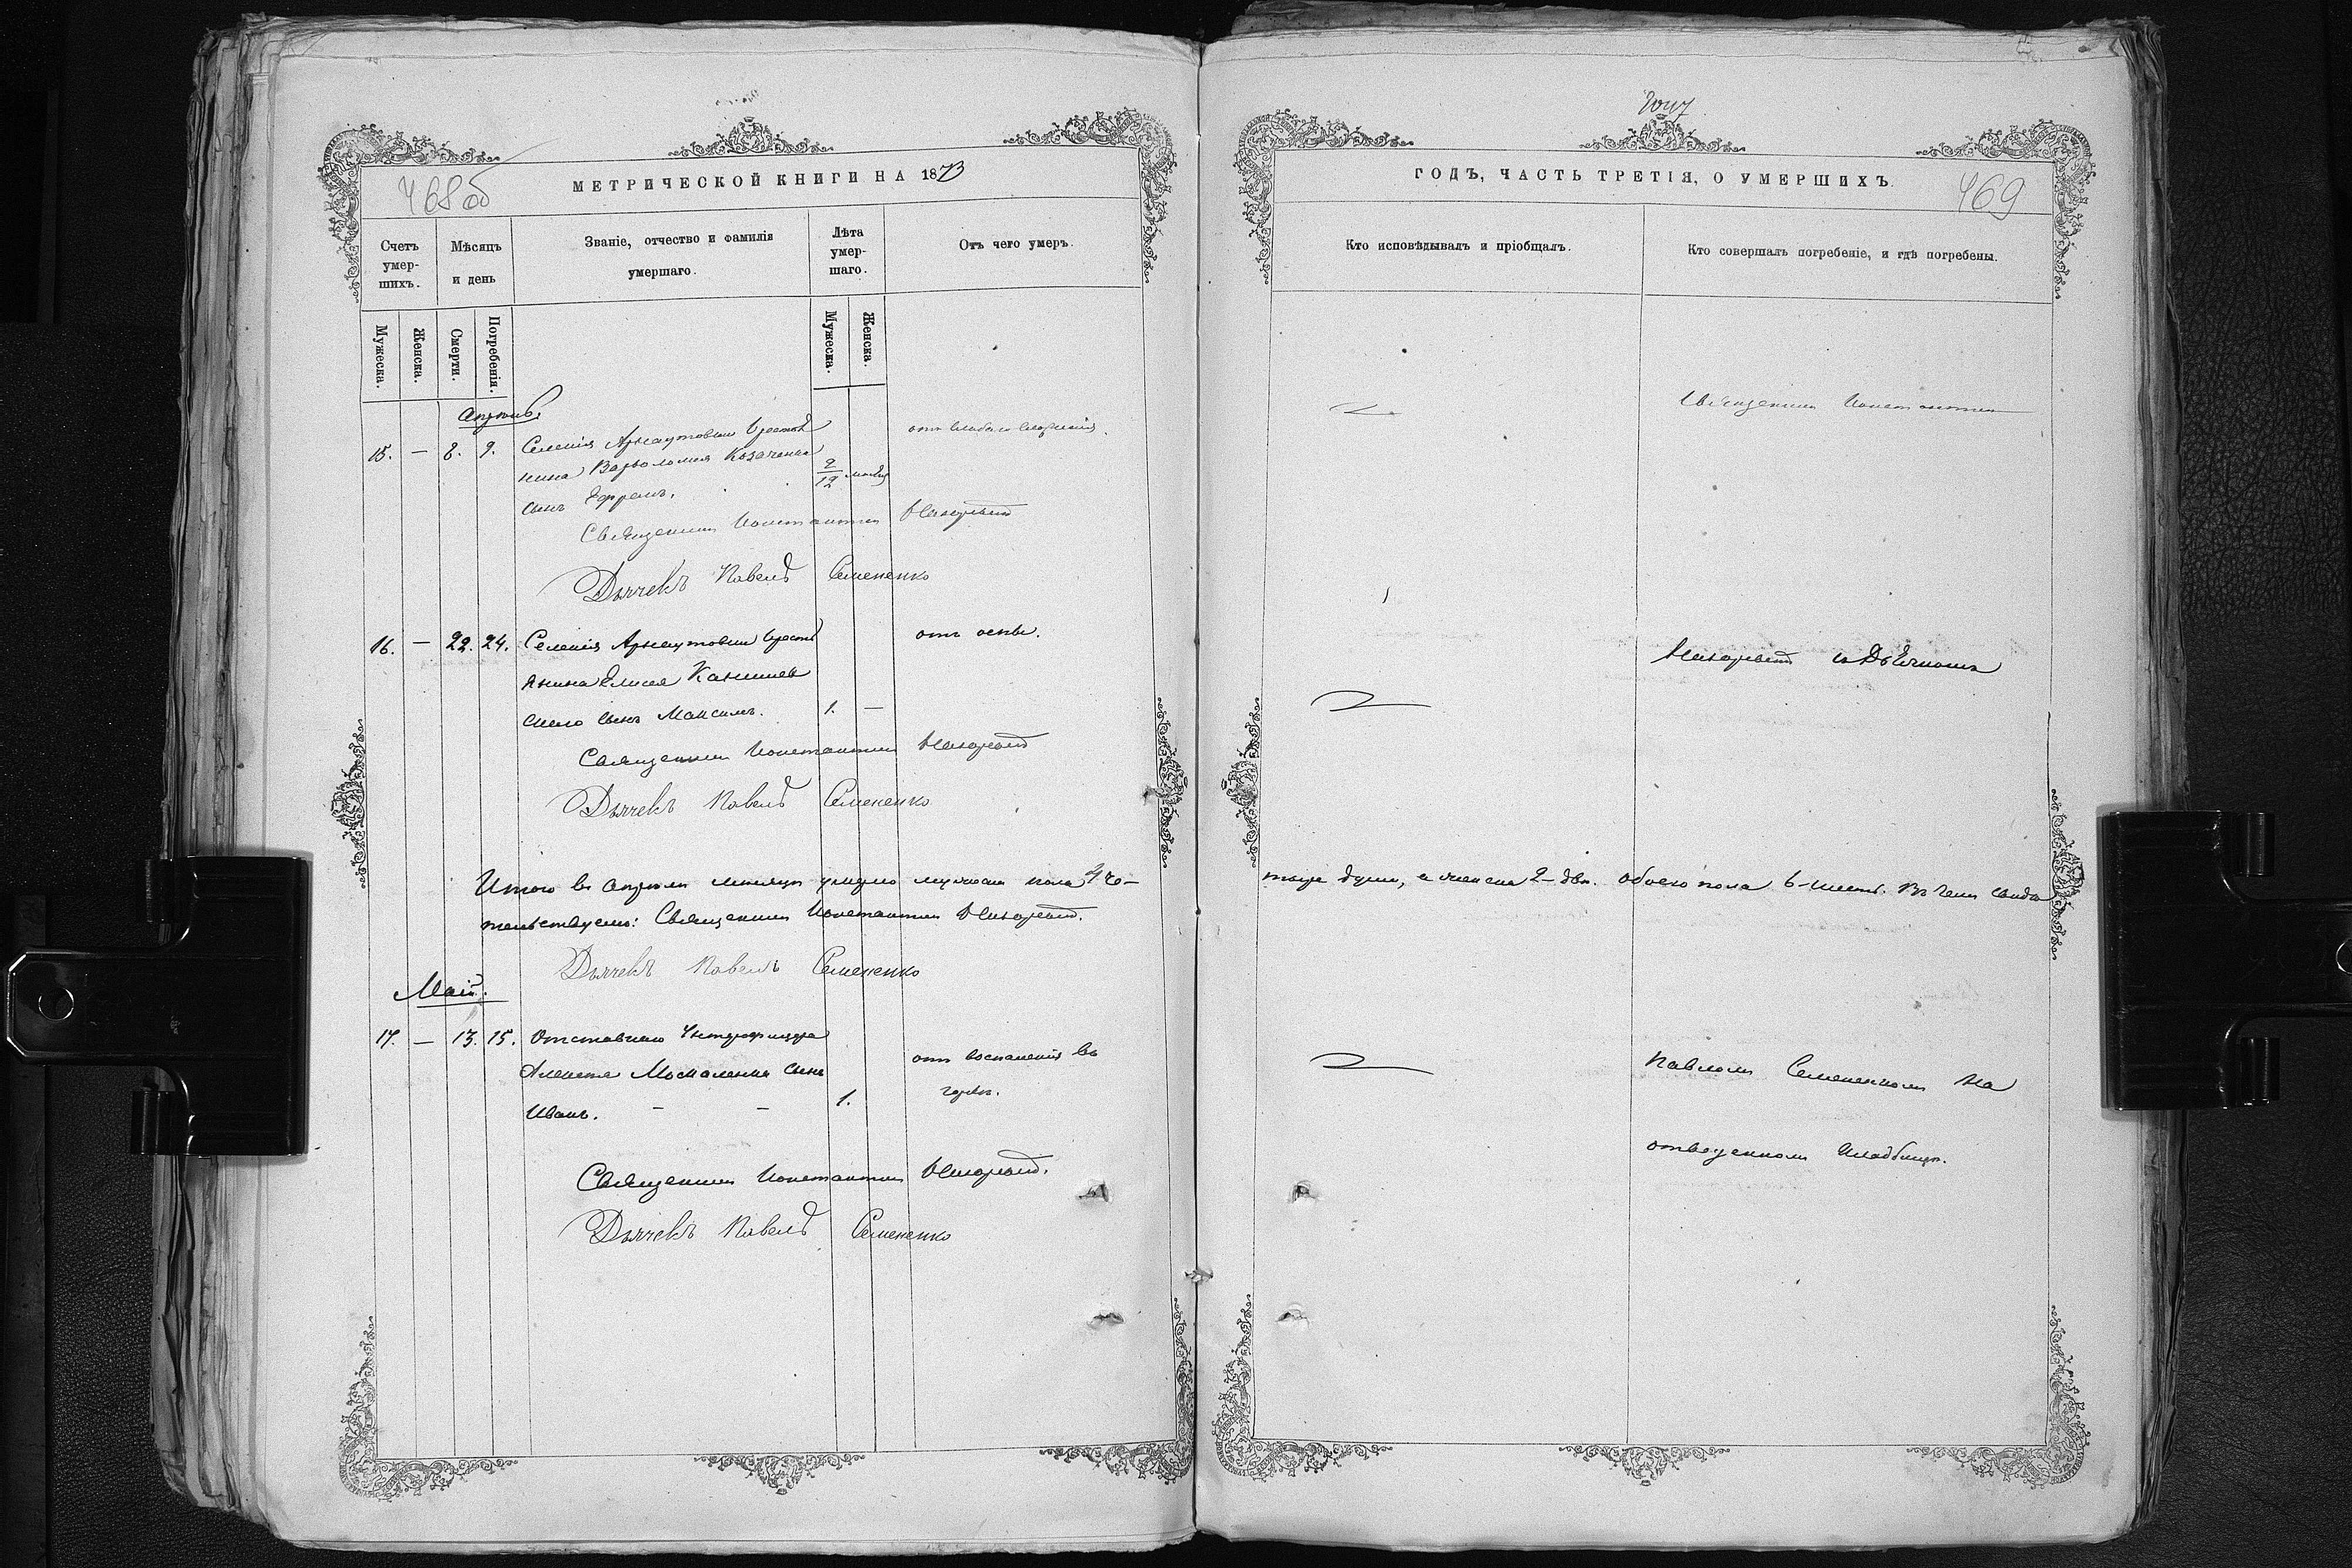 468 об
МЕТРИЧЕСКОЙ КНИГИ НА 1873
Счетъ умер-шихъ.
Мѣсяцъ и день
Званіе, отчество и фамилія умершаго.
Лѣта умер-шаго.
Отъ чего умеръ.
Мужеска.
Женска.
Смерти.
Погребенія.
Мужеска.
Женска.
Апрѣль
15. — 8. 9. Селенія Арнаутовки Крестья
нина Варѳоломея Козаченка 2/12 мѣсяц
сынъ Ефремъ.
отъ слабаго сложенія.
Священникъ Константинъ
Дьячекъ Павелъ Семененко
16. — 22. 24. Селенія Арнаутовки Крестья
отъ оспы.
янина Елисея
скаго сынъ Максимъ. 1. —
Священникъ Константинъ
Дьячекъ Павелъ Семененко
Итого въ Апрѣлѣ мѣсяцѣ умерло мужеска пола 4 че-
тельствуемъ: Священникъ Константинъ
Дьячекъ Павелъ Семененко
Май.
17. — 13. 15. Отставнаго Унтерофицера
Алексѣя Москаленка сынъ
Иванъ. — — 1.
отъ воспаленія въ
горлѣ.
Священникъ Константинъ
Дьячекъ Павелъ Семененко
ГОДЪ, ЧАСТЬ ТРЕТІЯ, О УМЕРШИХЪ.
469
Кто исповѣдывалъ и пріобщалъ.
Кто совершалъ погребеніе, и гдѣ погребены.
Священникъ Константинъ
съ Дьячкомъ
тыре души, а женска 2-двѣ. Обоего пола 6-шесть. Въ чемъ свидѣ
Павломъ Семененкомъ На
отведенномъ Кладбищѣ.